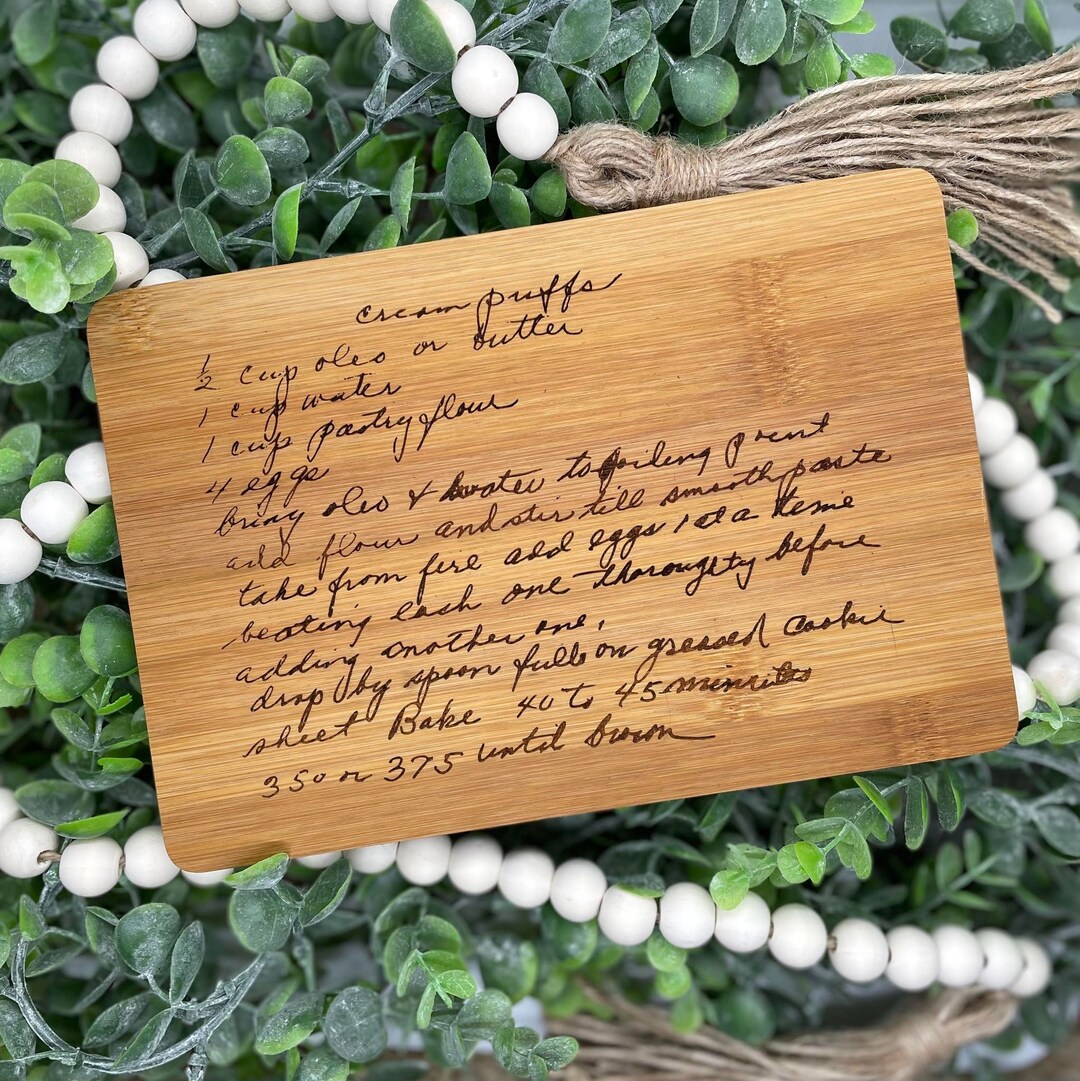 cream puffs
½ cup oleo or butter
1 cup water
1 cup pastry flour
4 eggs
bring oleo & water to boiling point
add flour and stir till smooth paste
take from fire add eggs 1 at a time
beating each one thoroughty before
adding another one,
drop by spoon fulls on greased cookie
sheet Bake 40 to 45 minutes
350 or 375 until brown